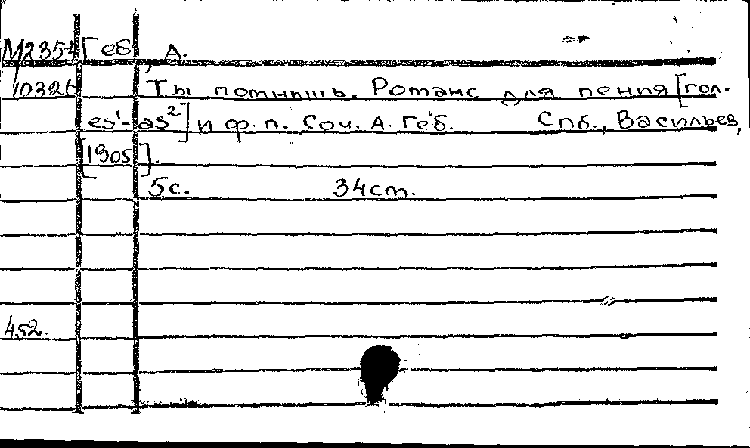 М2354 Геб, А.
10326 Ты помнишь. Романс для пения [гол.
es¹-as²] и ф.п. Соч. А. Геб. Спб., Васильев,
[1905].
5с. 34см.
452.